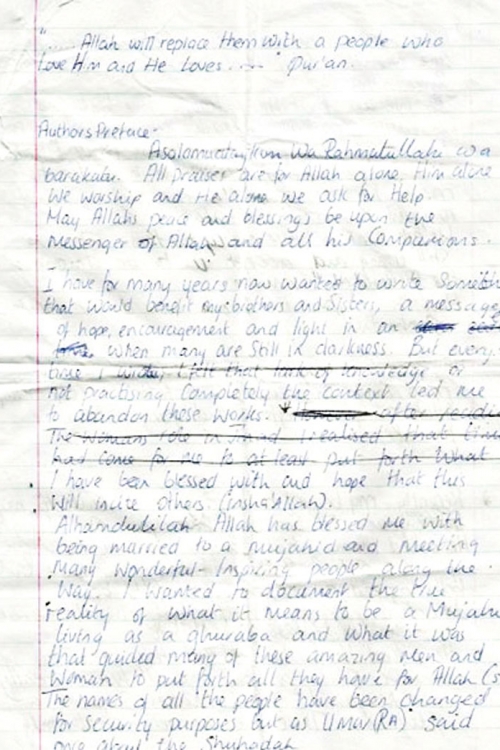 "..... Allah will replace them with a people who
Love Him and He loves ..... Quran.
Authors Preface:
Asalamualaykum Wa Rahmatullahi wa
barakatu. All praises are for Allah alone, Him alone
we worship and He alone we ask for Help.
May Allahs peace and blessings be upon the
messenger of Allah and all his Companions.
I have for many years now wanted to write Someth
that would benefit my brothers and Sisters, a message
of hope, encouragement and light in an
when many are Still in darkness. But every
time I wrote, I felt that lack of knowledge or
not practising Completely the context led me
to abandon these works. after
The Womans role in Jihad I realised that
had come for me to at least put forth What
I have been blessed with and hope that this
will incite others (insha'Allah).
Alhamdulilah Allah has blessed me with
being married to a mujahid and meeting
Many wonderful Inspiring people along the
Way. I wanted to document the true
reality of what it means to be a Mujahi
living as a ghuraba and what it was
that guided many of these amazing Men and
Woman to put forth all they have for Allah (s
The names of all the people have been changed
for Security purposes but as Umar (RA) said
once about the Shuhadah